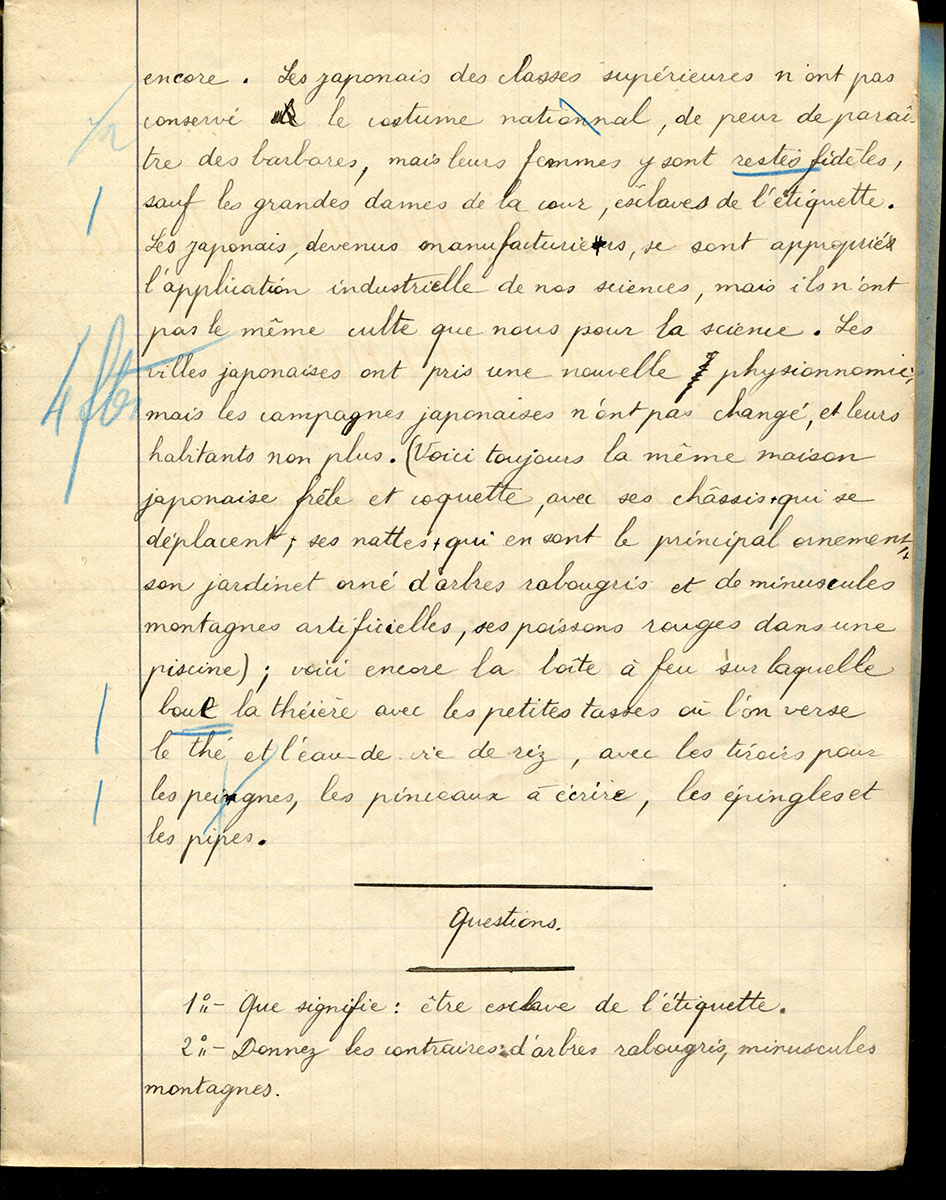 encore. Les japonais des classes supérieures n'ont pas
conservé le costume nationnal, de peur de paraî-
tre des barbares, mais leurs femmes y sont restés fidèles,
sauf les grandes dames de la cour, esclaves de l'étiquette.
Les japonais, devenus manufacturiers, se sont appropriés
l'application industrielle de nos sciences, mais ils n'ont
pas le même culte que nous pour la science. Les
villes japonaises ont pris une nouvelle physionnomie,
mais les campagnes japonaises n'ont pas changé, et leurs
habitants non plus. (Voici toujours la même maison
japonaise frêle et coquette, avec ses châssis qui se
déplacent, ses nattes qui en sont le principal ornement,
son jardinet orné d'arbres rabougris et de minuscules
montagnes artificielles, ses poissons rouges dans une
piscine); voici encore la boîte à feu sur laquelle
bout la théière avec les petites tasses où l'on verse
le thé et l'eau de vie de riz, avec les tiroirs pour
les peingnes, les pinceaux à écrire, les épingles et
les pipes.
Questions.
1°- Que signifie : être esclave de l'étiquette.
2°- Donnez les contraires: d'arbres rabougris, minuscules
montagnes.
1/2
1
4 fts
1
1